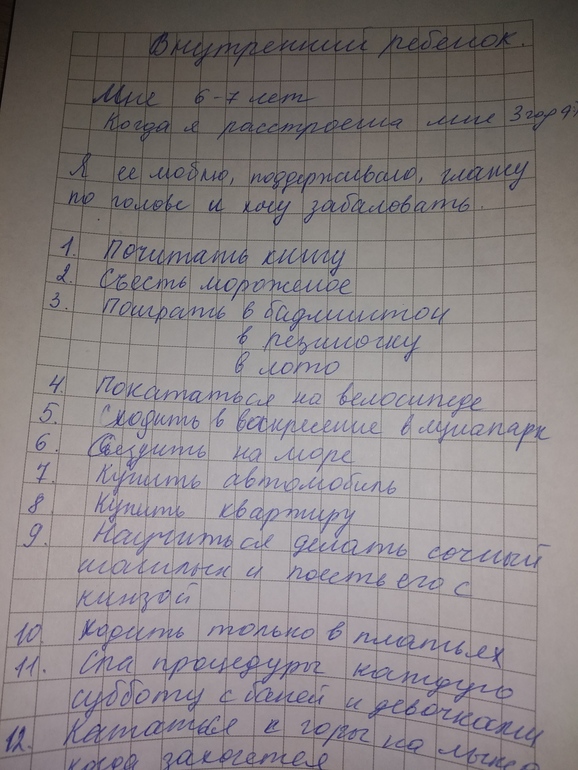 Внутренний ребенок.
Мне 6-7 лет
Когда я расстроена мне 3 года
Я ее люблю, поддерживаю, глажу
по голове и хочу забаловать.
1. Почитать книгу
2. Съесть мороженое
3. Поиграть в бадминтон
в резиночку
в лото
4. Покататься на велосипеде
5. Сходить в воскресение в луна парк
6. Съездить на море
7. Купить автомобиль
8 Купить квартиру
9. Научиться делать сочный
шашлык и поесть его с
кинзой
10. Ходить только в платьях
11. Спа процедуры каждую
субботу с баней и девочками
12. Кататься с горы на лыжа
когда захочется